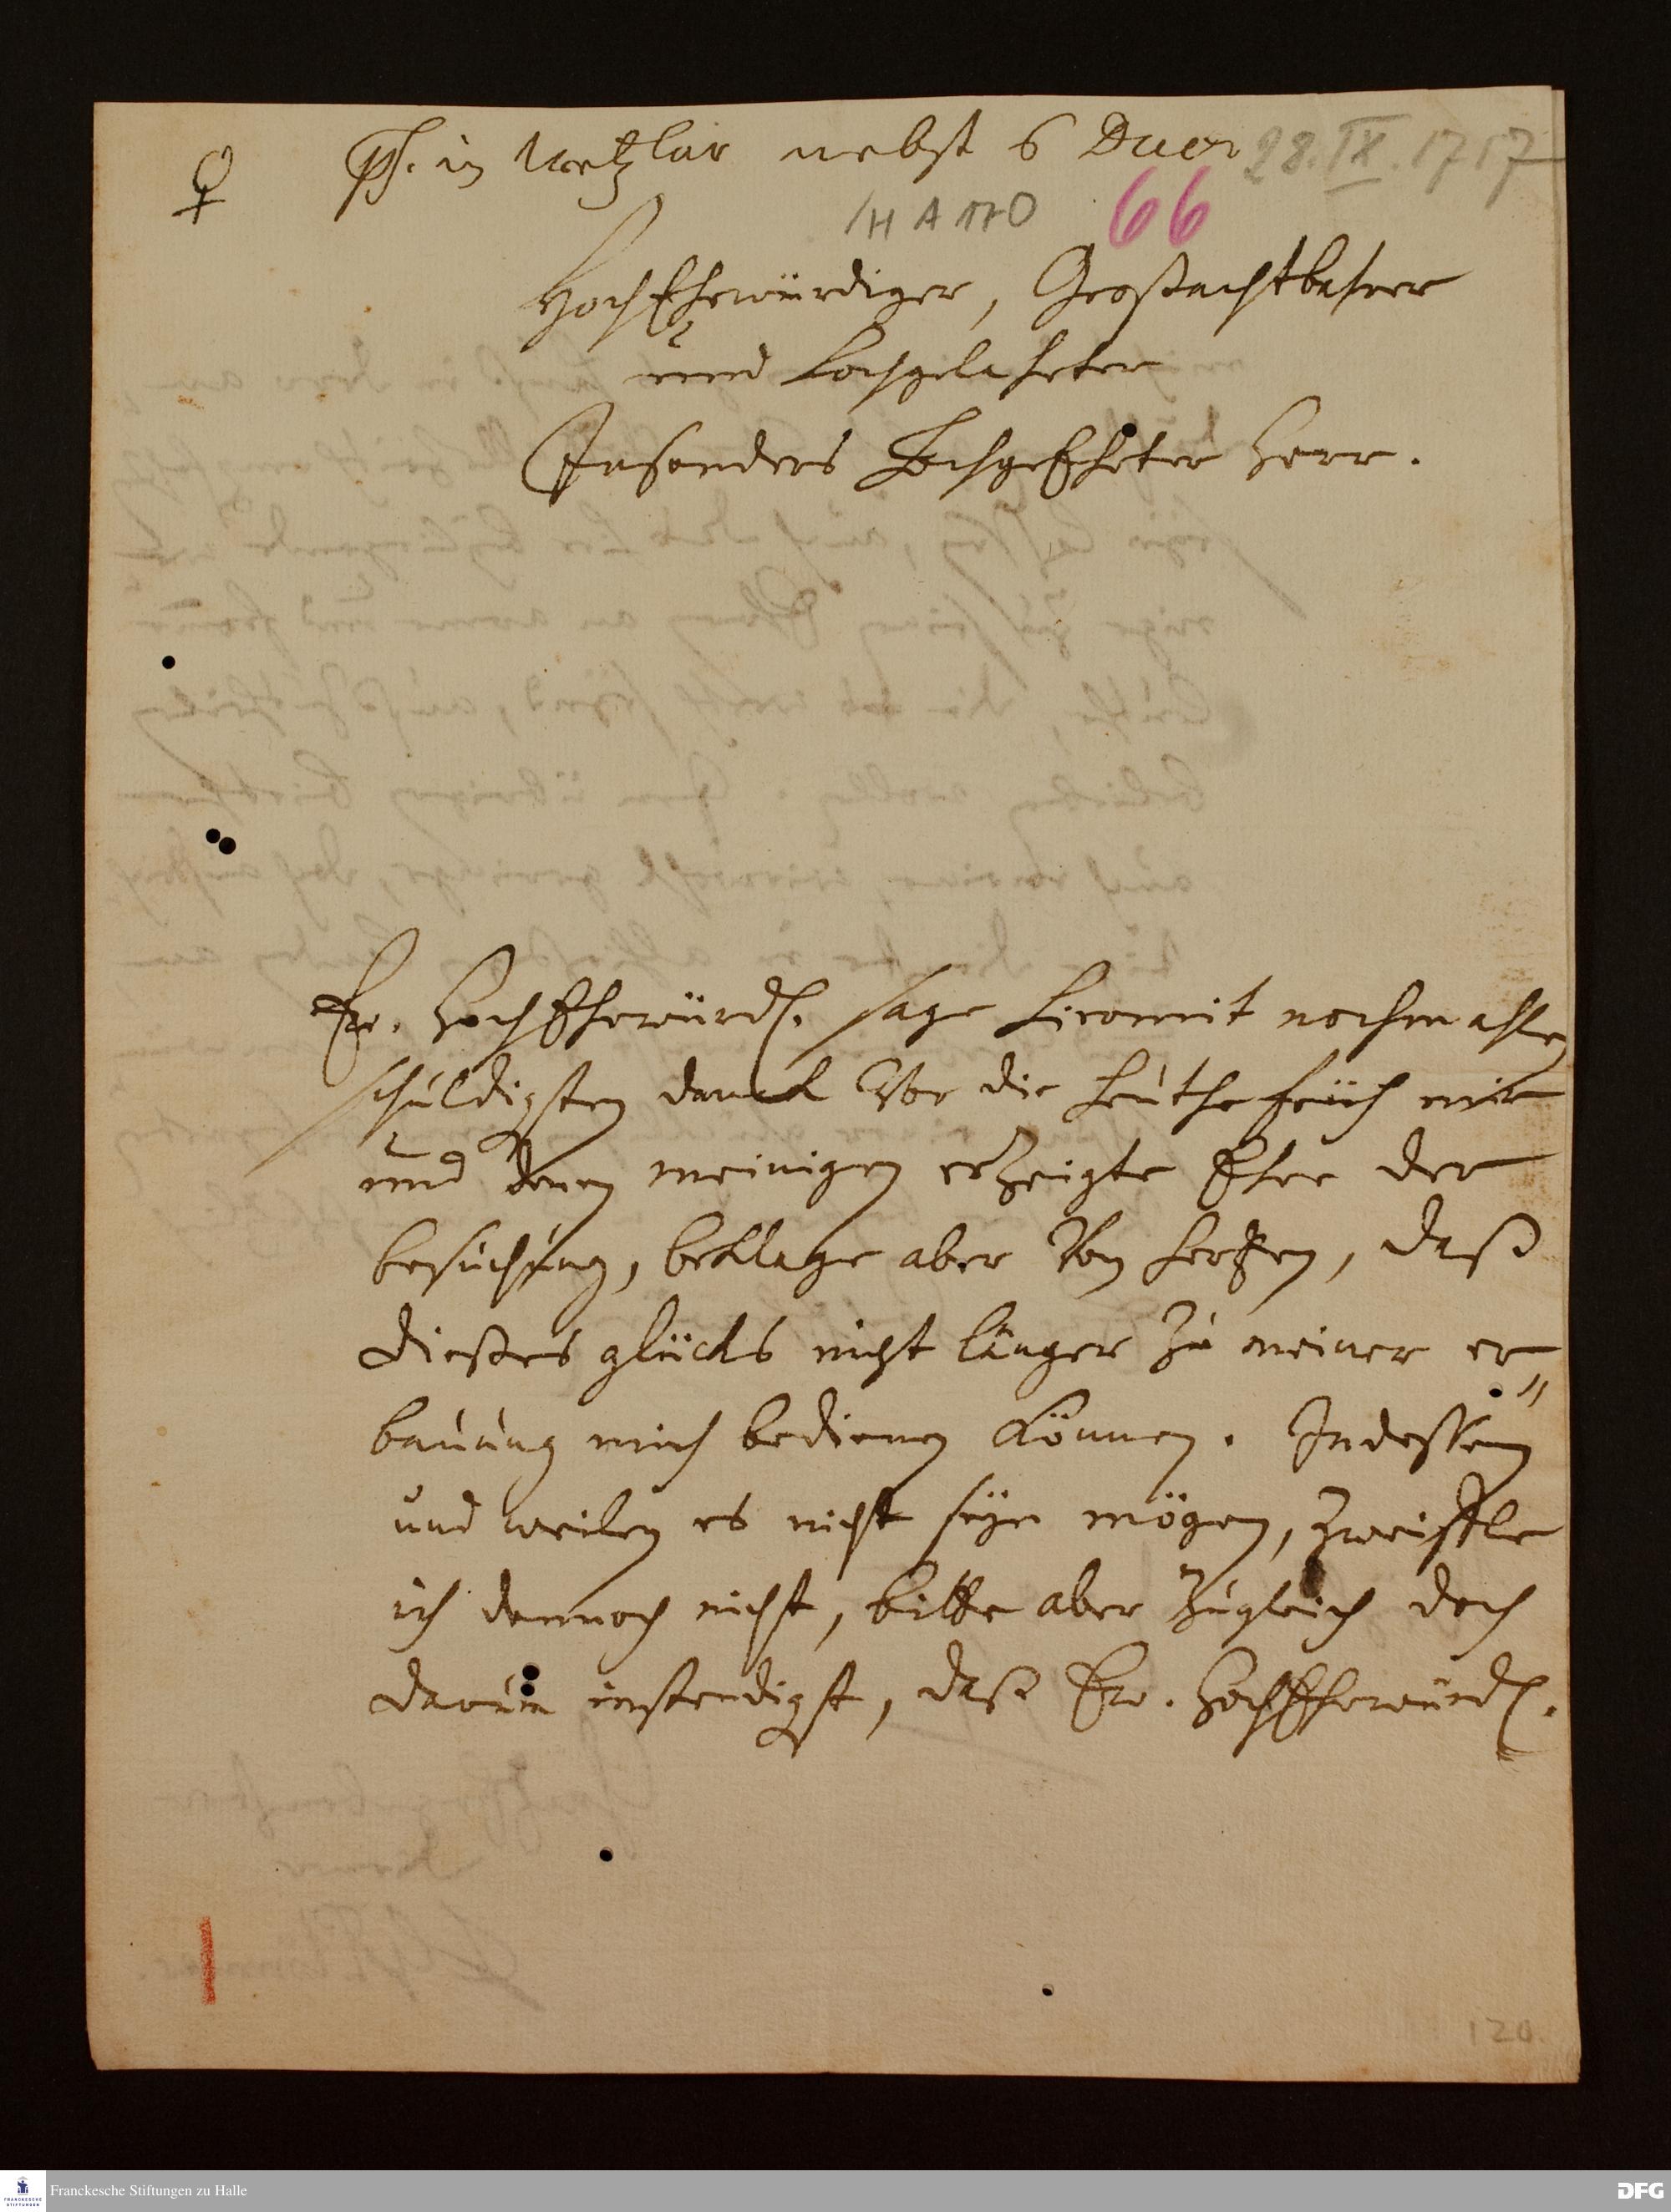 ♀ ps. in Wetzlar nebst 6 Duc. 28. IX. 1717
/H A 170 66
HochEhrwürdiger, Großachtbahrer
und Hochgelahrter
Insonders HochgeEhrter Herr.
Ew. HochEhrwürd. sage hiermit nochmahlen
schuldigsten danck Vor die heuthe früh mir
und denen meinigen erzeigte Ehre der
besuchung, beklage aber Von hertzen, daß
dießes glücks nicht länger zu meiner er=
bauung mich bedienen können. Indeßen
und weilen es nicht seyn mögen, zweiffle
ich dennoch nicht, bitte aber zugleich doch
darum instendigst, daß Ew. HochEhrwürd.
120.
Franckesche Stiftungen zu Halle
FRANCKESCHE STIFTUNGEN
DFG